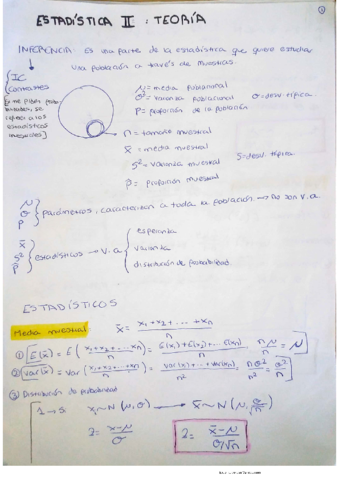 ESTADÍSTICA II : TEORÍA
INFERENCIA: Es una parte de la estadística que quiere estudiar
una población a través de muestras.
IC
Contrastes
μ = media poblacional
σ² = varianza poblacional σ = desv. típica.
P = proporción de la población
n = tamaño muestral
x̄ = media muestral
S² = varianza muestral S = desv. típica
p̂ = proporción muestral
μ
σ
P
parámetros, caracterizan a toda la población. → No son v.a
x̄
S²
p̂
estadísticos → v.a
esperanza
varianza
distribución de probabilidad.
ESTADÍSTICOS
Media muestral: x̄ = x₁+x₂+...+xₙ / n
① E(x̄) = E(x₁+x₂+...+xₙ / n) = E(x₁)+E(x₂)+...E(xₙ) / n = nμ / n = μ
② Var(x̄) = Var(x₁+x₂+...+xₙ / n) = Var(x₁)+...+Var(xₙ) / n² = nσ² / n² = σ² / n
③ Distribución de probabilidad
xᵢ ~ N(μ, σ) → x̄ ~ N(μ, σ/√n)
Z = x-μ / σ
Z = x̄-μ / σ/√n